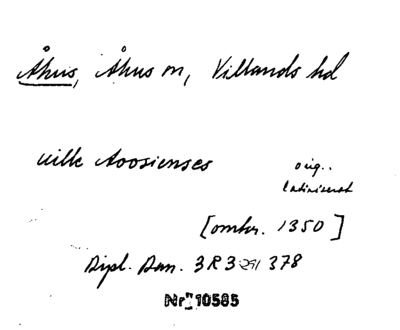 Åhus, Åhus sn, Villands hd
ville Aoosienses orig..
latiniserat
[omkr. 1350]
Dipl. Dan. 3 R 3 378
Nr 10585